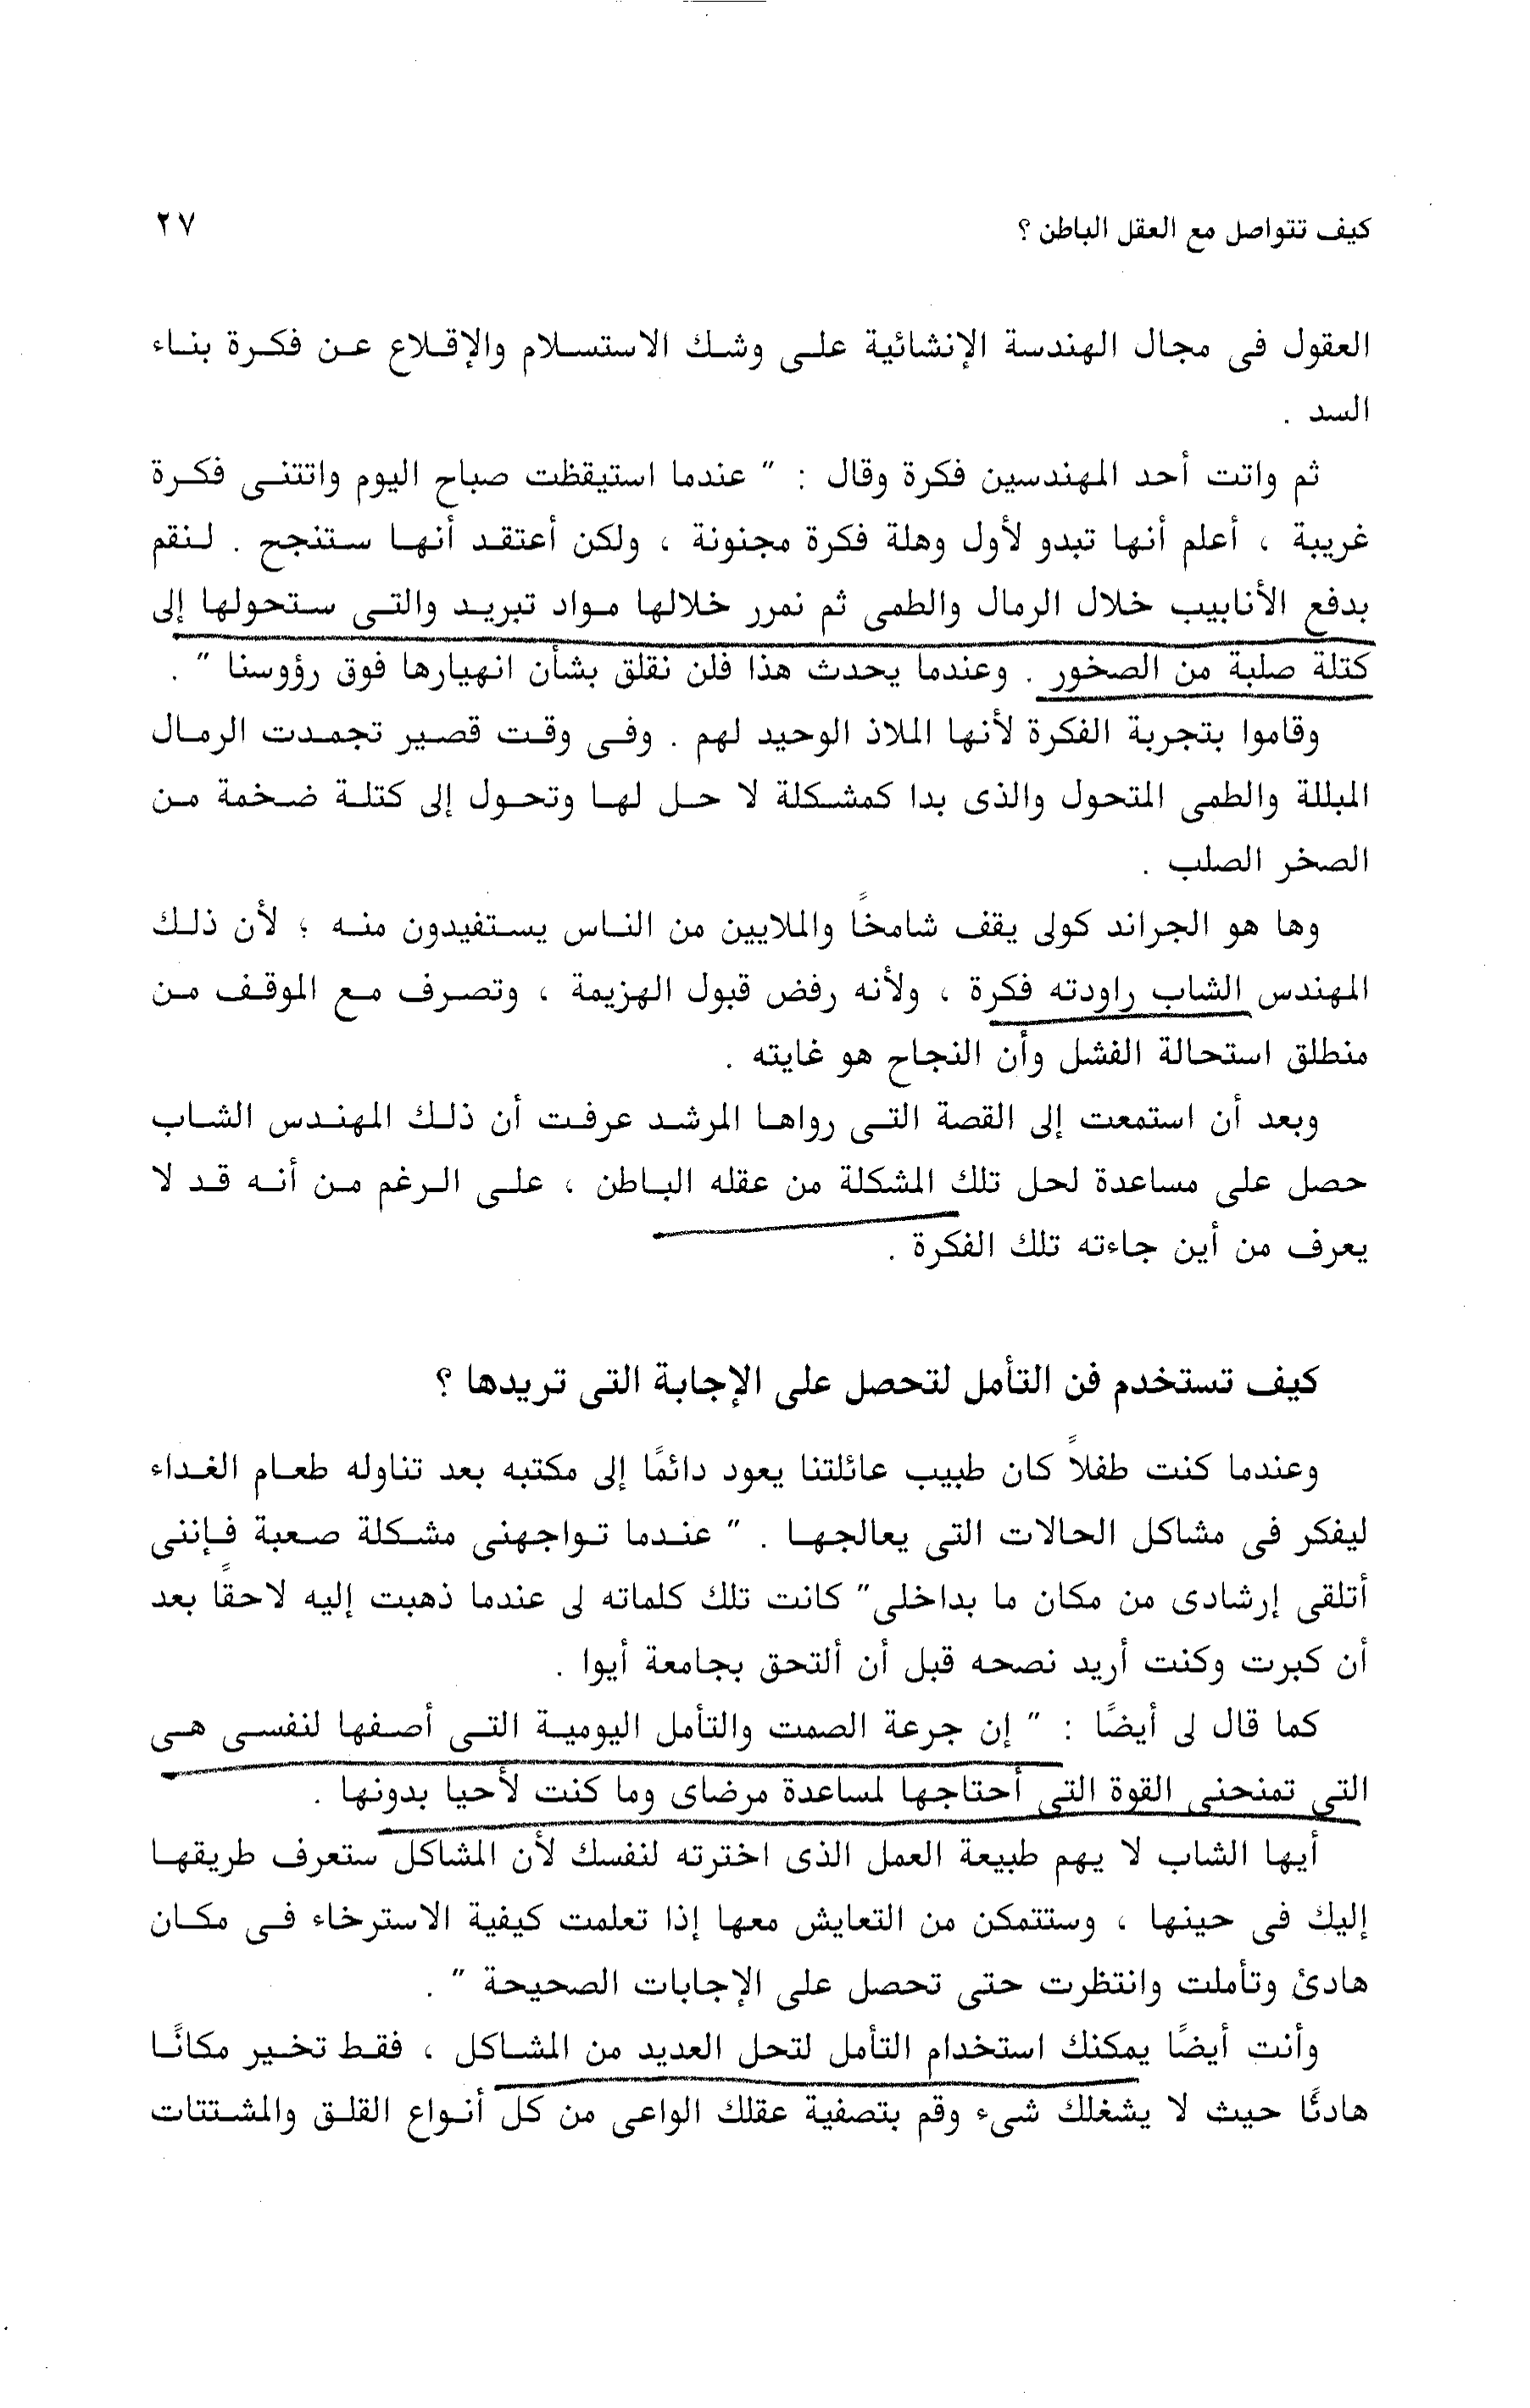 كيف تتواصل مع العقل الباطن ؟ ٢٧
العقول فى مجال الهندسة الإنشائية على وشك الاستسلام والإقلاع عن فكرة بناء
السد .
ثم واتت أحد المهندسين فكرة وقال : " عندما استيقظت صباح اليوم واتتنى فكرة
غريبة ، أعلم أنها تبدو لأول وهلة فكرة مجنونة ، ولكن أعتقد أنها ستنجح . لنقم
بدفع الأنابيب خلال الرمال والطمى ثم نمرر خلالها مواد تبريد والتى ستحولها إلى
كتلة صلبة من الصخور . وعندما يحدث هذا فلن نقلق بشأن انهيارها فوق رؤوسنا " .
وقاموا بتجربة الفكرة لأنها الملاذ الوحيد لهم . وفى وقت قصير تجمدت الرمال
المبللة والطمى المتحول والذى بدا كمشكلة لا حل لها وتحول إلى كتلة ضخمة من
الصخر الصلب .
وها هو الجراند كولى يقف شامخًا والملايين من الناس يستفيدون منه ؛ لأن ذلك
المهندس الشاب راودته فكرة ، ولأنه رفض قبول الهزيمة ، وتصرف مع الموقف من
منطلق استحالة الفشل وأن النجاح هو غايته .
وبعد أن استمعت إلى القصة التى رواها المرشد عرفت أن ذلك المهندس الشاب
حصل على مساعدة لحل تلك المشكلة من عقله الباطن ، على الرغم من أنه قد لا
يعرف من أين جاءته تلك الفكرة .
كيف تستخدم فن التأمل لتحصل على الإجابة التى تريدها ؟
وعندما كنت طفلاً كان طبيب عائلتنا يعود دائمًا إلى مكتبه بعد تناوله طعام الغداء
ليفكر فى مشاكل الحالات التى يعالجها . " عندما تواجهنى مشكلة صعبة فإننى
أتلقى إرشادى من مكان ما بداخلى" كانت تلك كلماته لى عندما ذهبت إليه لاحقًا بعد
أن كبرت وكنت أريد نصحه قبل أن ألتحق بجامعة أيوا .
كما قال لى أيضًا : " إن جرعة الصمت والتأمل اليومية التى أصفها لنفسى هى
التى تمنحنى القوة التى أحتاجها لمساعدة مرضاى وما كنت لأحيا بدونها .
أيها الشاب لا يهم طبيعة العمل الذى اخترته لنفسك لأن المشاكل ستعرف طريقها
إليك فى حينها ، وستتمكن من التعايش معها إذا تعلمت كيفية الاسترخاء فى مكان
هادئ وتأملت وانتظرت حتى تحصل على الإجابات الصحيحة " .
وأنت أيضًا يمكنك استخدام التأمل لتحل العديد من المشاكل ، فقط تخير مكانًا
هادئًا حيث لا يشغلك شىء وقم بتصفية عقلك الواعى من كل أنواع القلق والمشتتات